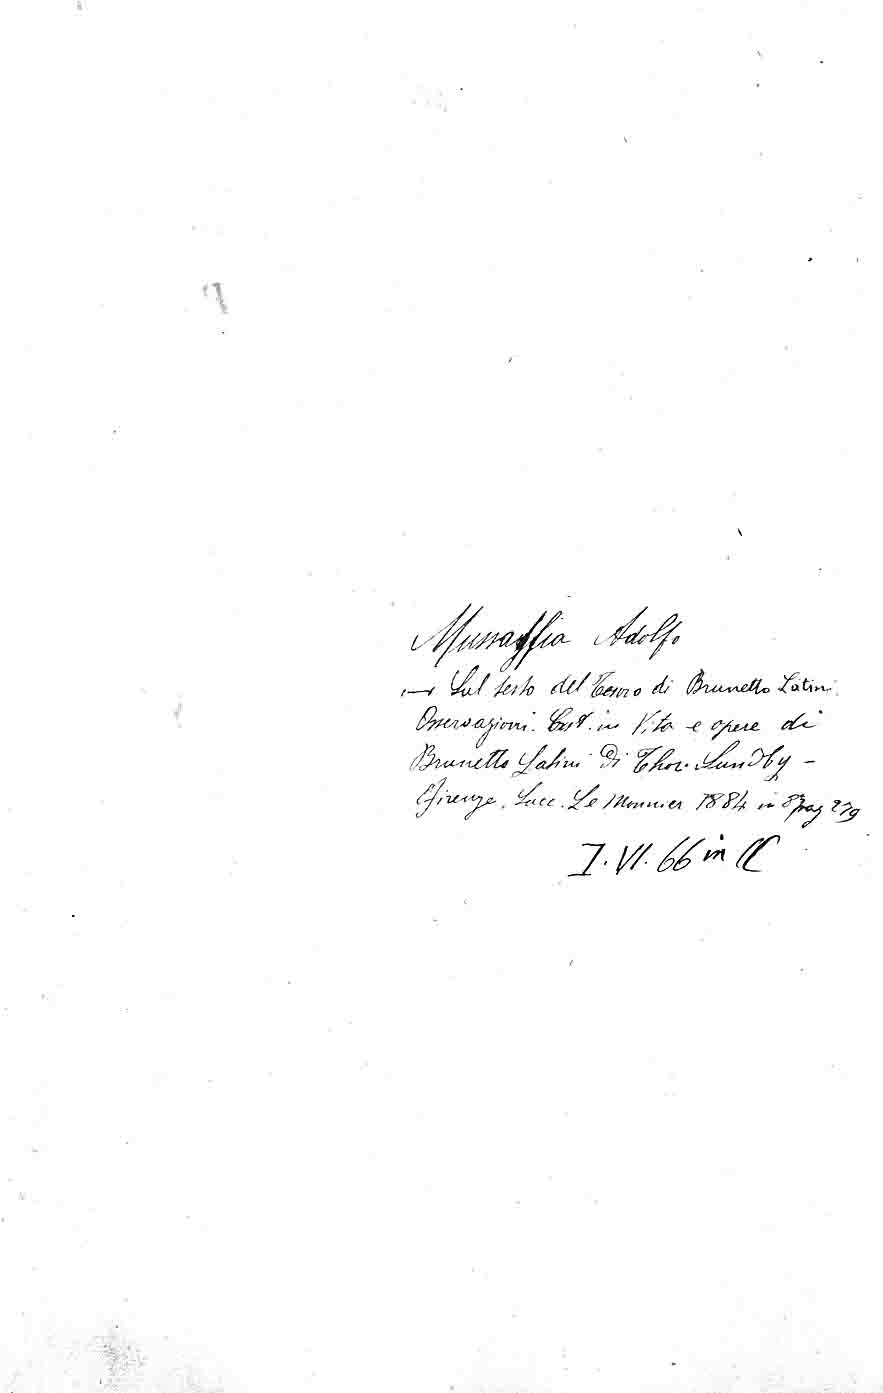 Mussaffia Adolfo
— Sul testo del Tesoro di Brunetto Latini.
Osservazioni. in Vita e opere di
Brunetto Latini di Thor. Sundby –
Firenze. Succ. Le Monnier 1884 in 8º pag 279
I. VI. 66 in